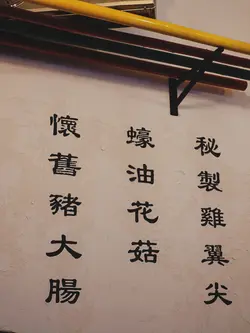 秘製雞翼尖
蠔油花菇
懷舊豬大腸